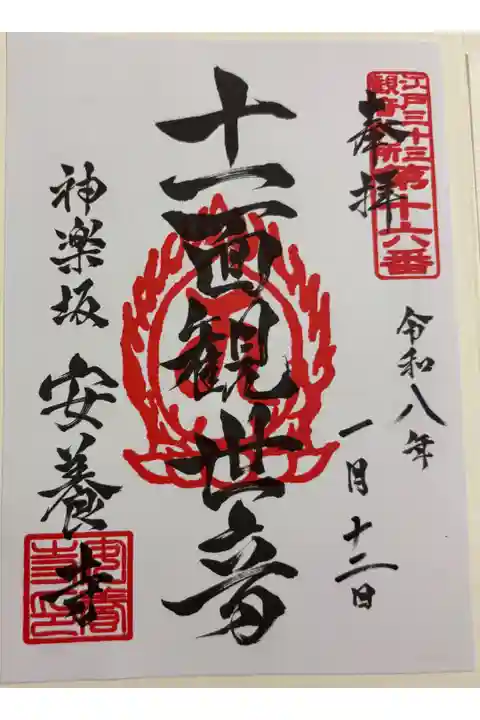 江戸三十三
観音札所
第十六番
奉拝
令和八年
一月十二日
十一面観世音
神楽坂
安養寺